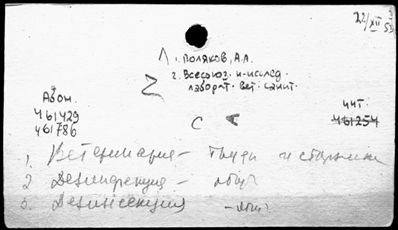 22/XII 53
1. Поляков, А.А.
2. Всесоюз. н-исслед.
лаборат. вет. санит.
Абон.
461429
461786
чит.
461254
С А
1. Ветеринария - Труды и
2. Дезинфекция - общ
3. Дезинсекция - общ